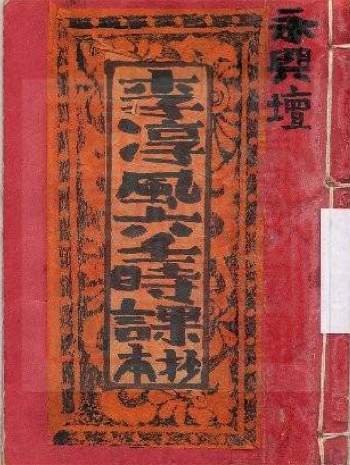 永興壇
李淳風六壬時課
抄本